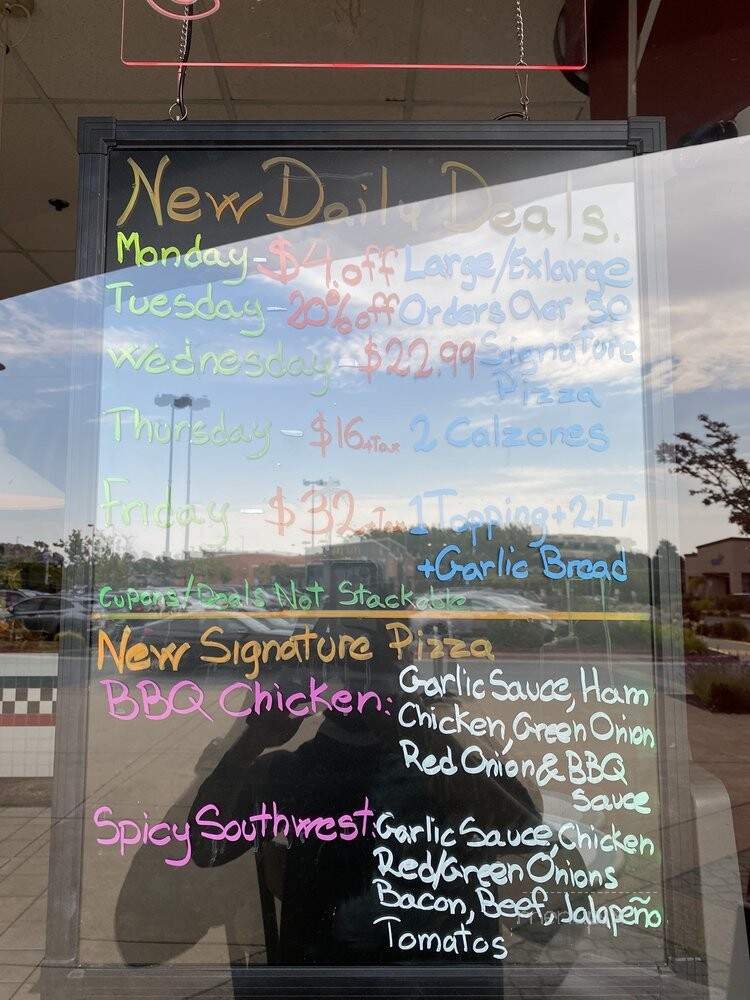 New Daily Deals.
Monday - $4 off Large/Exlarge
Tuesday - 20% off Orders Over 30
Wednesday - $22.99 Signature
Pizza
Thursday - $16 +Tax 2 Calzones
Friday - $32 +Tax 1 Topping + 2LT
+Garlic Bread
Cupons/Deals Not Stackable
New Signature Pizza
BBQ Chicken: Garlic Sauce, Ham
Chicken, Green Onion
Red Onion & BBQ
Sauce
Spicy Southwest: Garlic Sauce, Chicken
Red/Green Onions
Bacon, Beef, Jalapeño
Tomatos